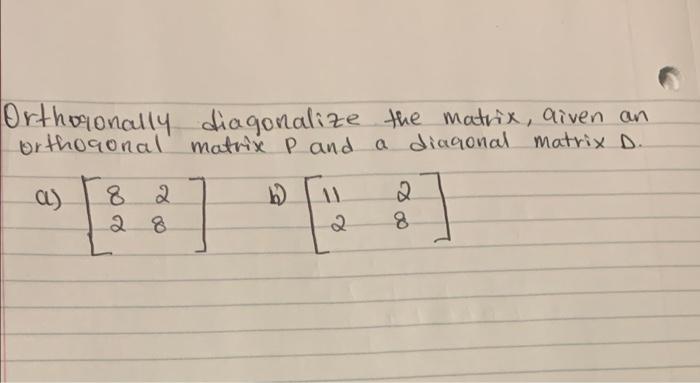 Orthogonally diagonalize the matrix, given an
orthogonal matrix P and a diagonal matrix D.
a) [8 2 b) [11 2
2 8] 2 8]